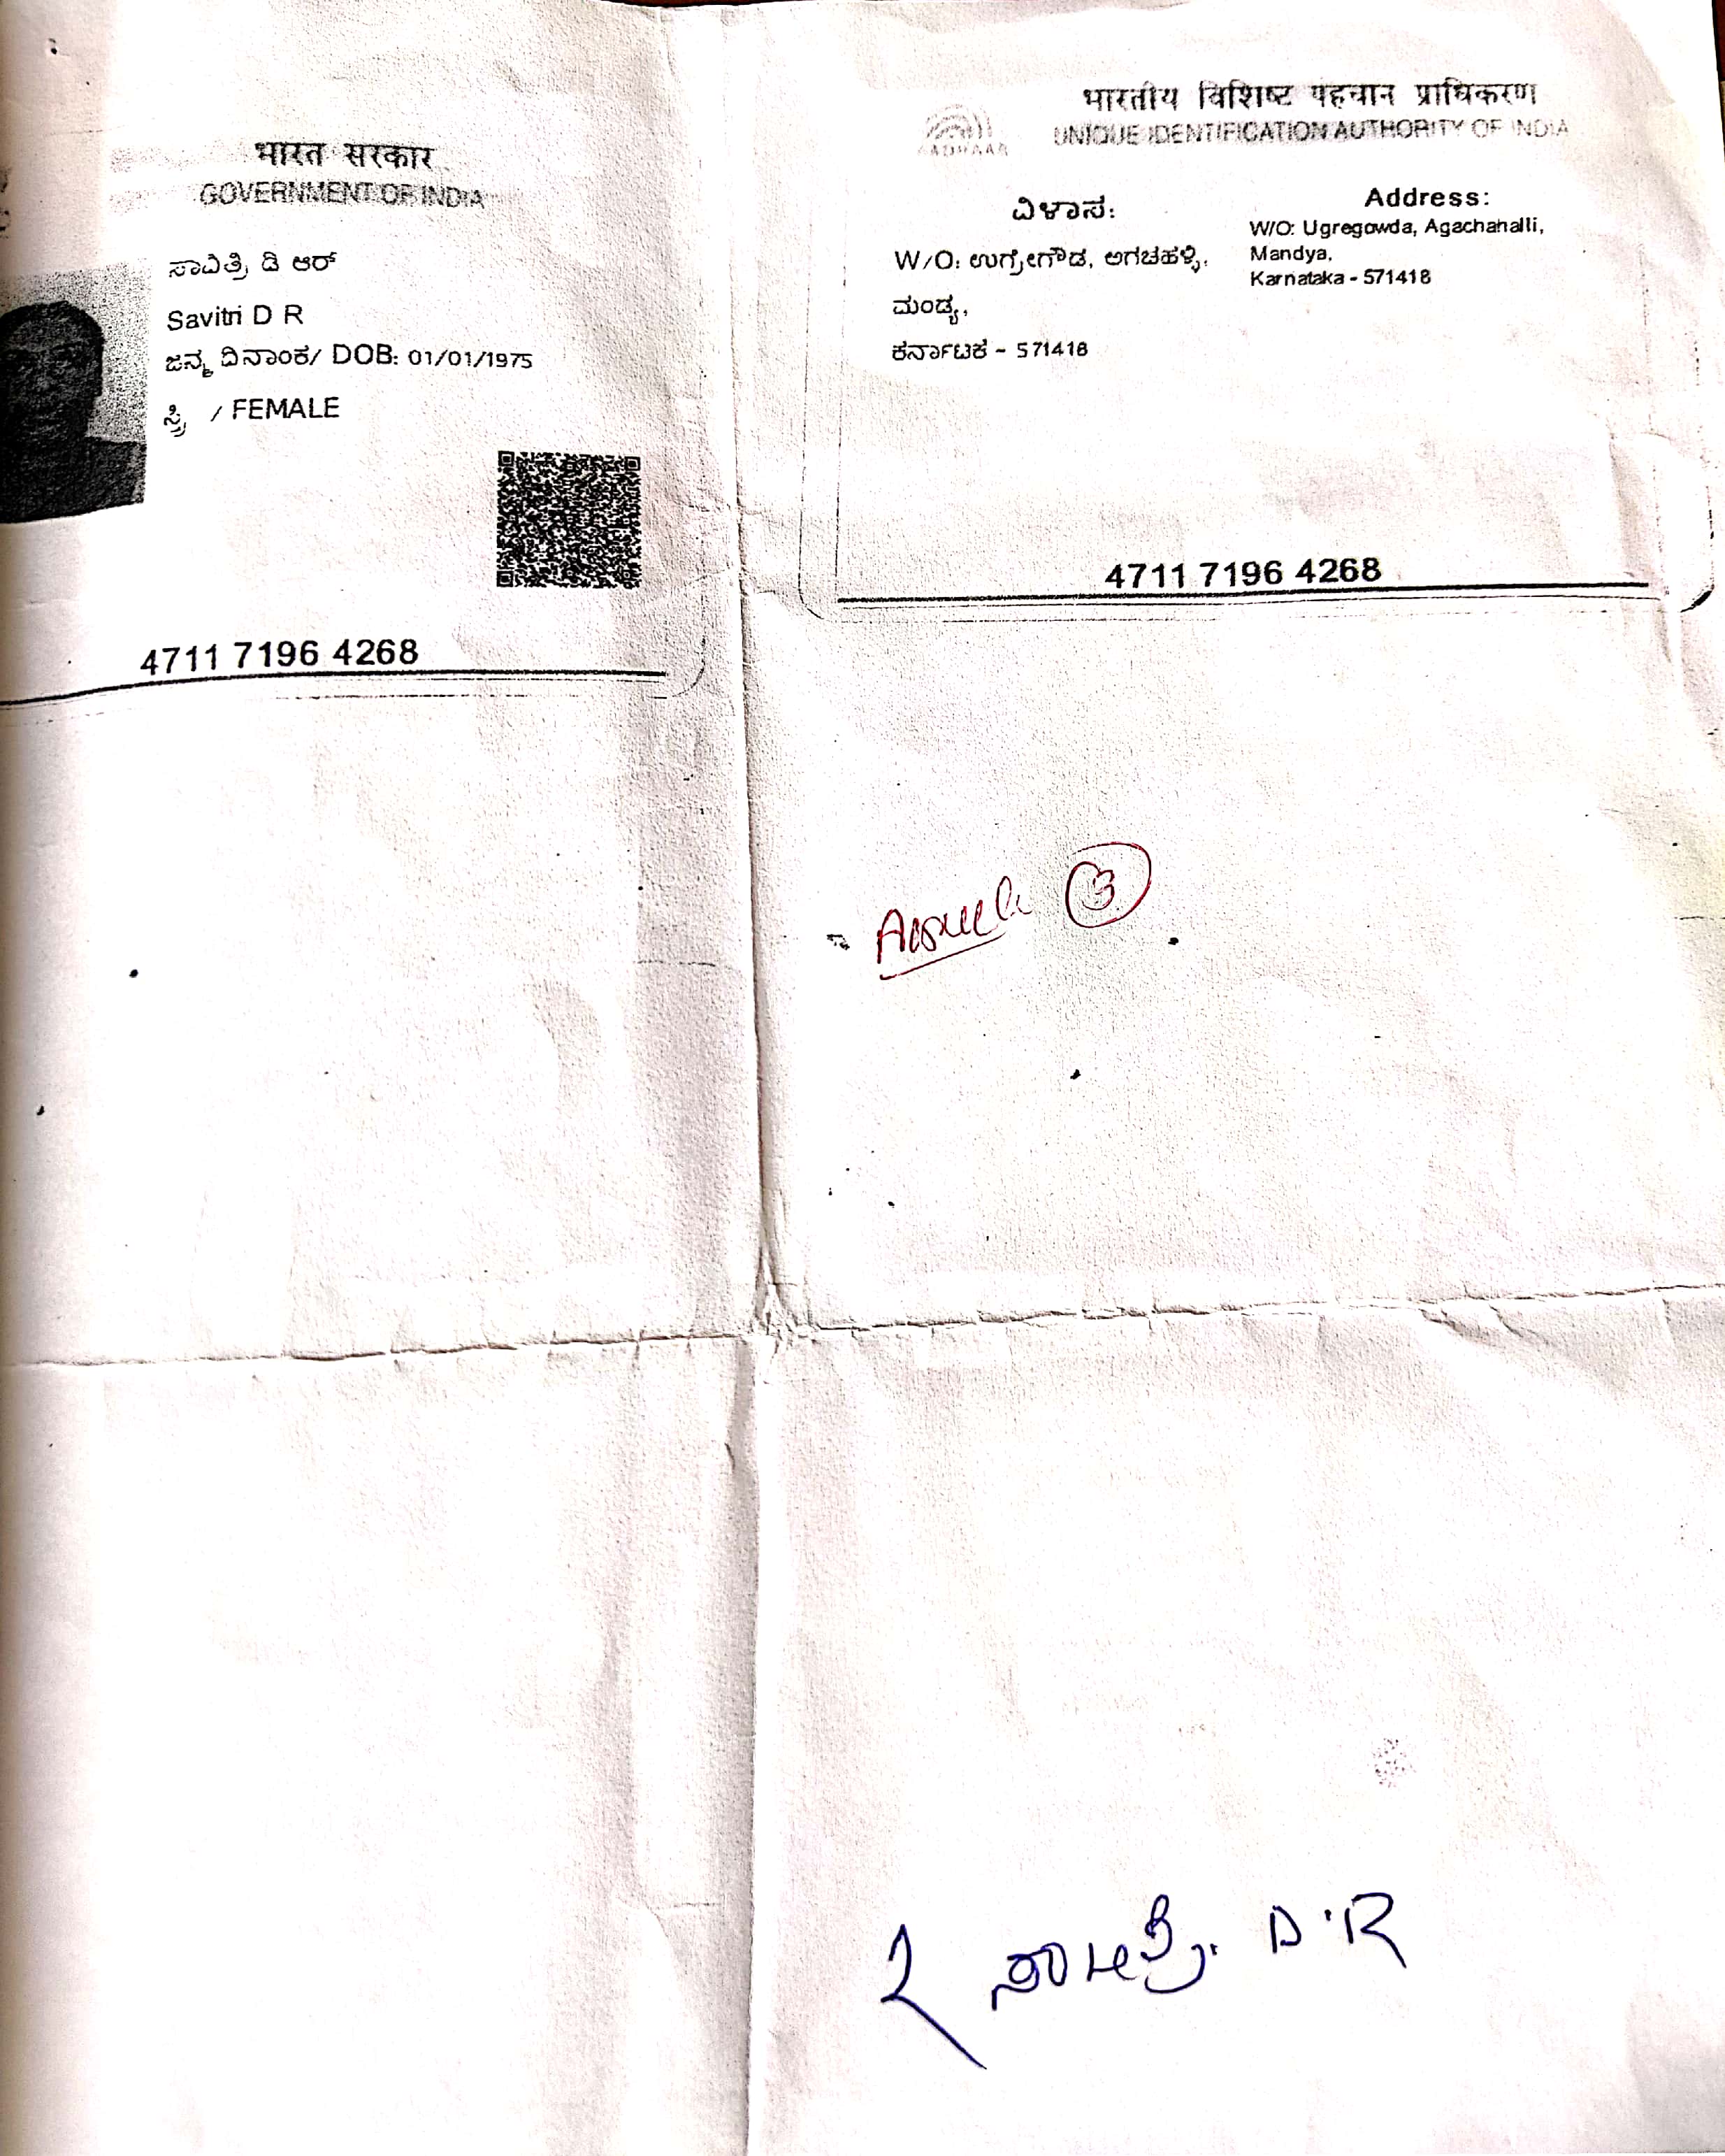 भारत सरकार
GOVERNMENT OF INDIA
ಸಾವಿತ್ರಿ ಡಿ ಆರ್
Savitri D R
ಜನ್ಮ ದಿನಾಂಕ/ DOB: 01/01/1975
ಸ್ತ್ರೀ / FEMALE
4711 7196 4268
भारतीय विशिष्ट पहचान प्राधिकरण
UNIQUE IDENTIFICATION AUTHORITY OF INDIA
AADHAAR
ವಿಳಾಸ:
W/O: ಉಗ್ರೇಗೌಡ, ಅಗಚಹಳ್ಳಿ,
ಮಂಡ್ಯ,
ಕರ್ನಾಟಕ - 571418
Address:
W/O: Ugregowda, Agachahalli,
Mandya,
Karnataka - 571418
4711 7196 4268
3
ಸಾವಿತ್ರಿ. D.R